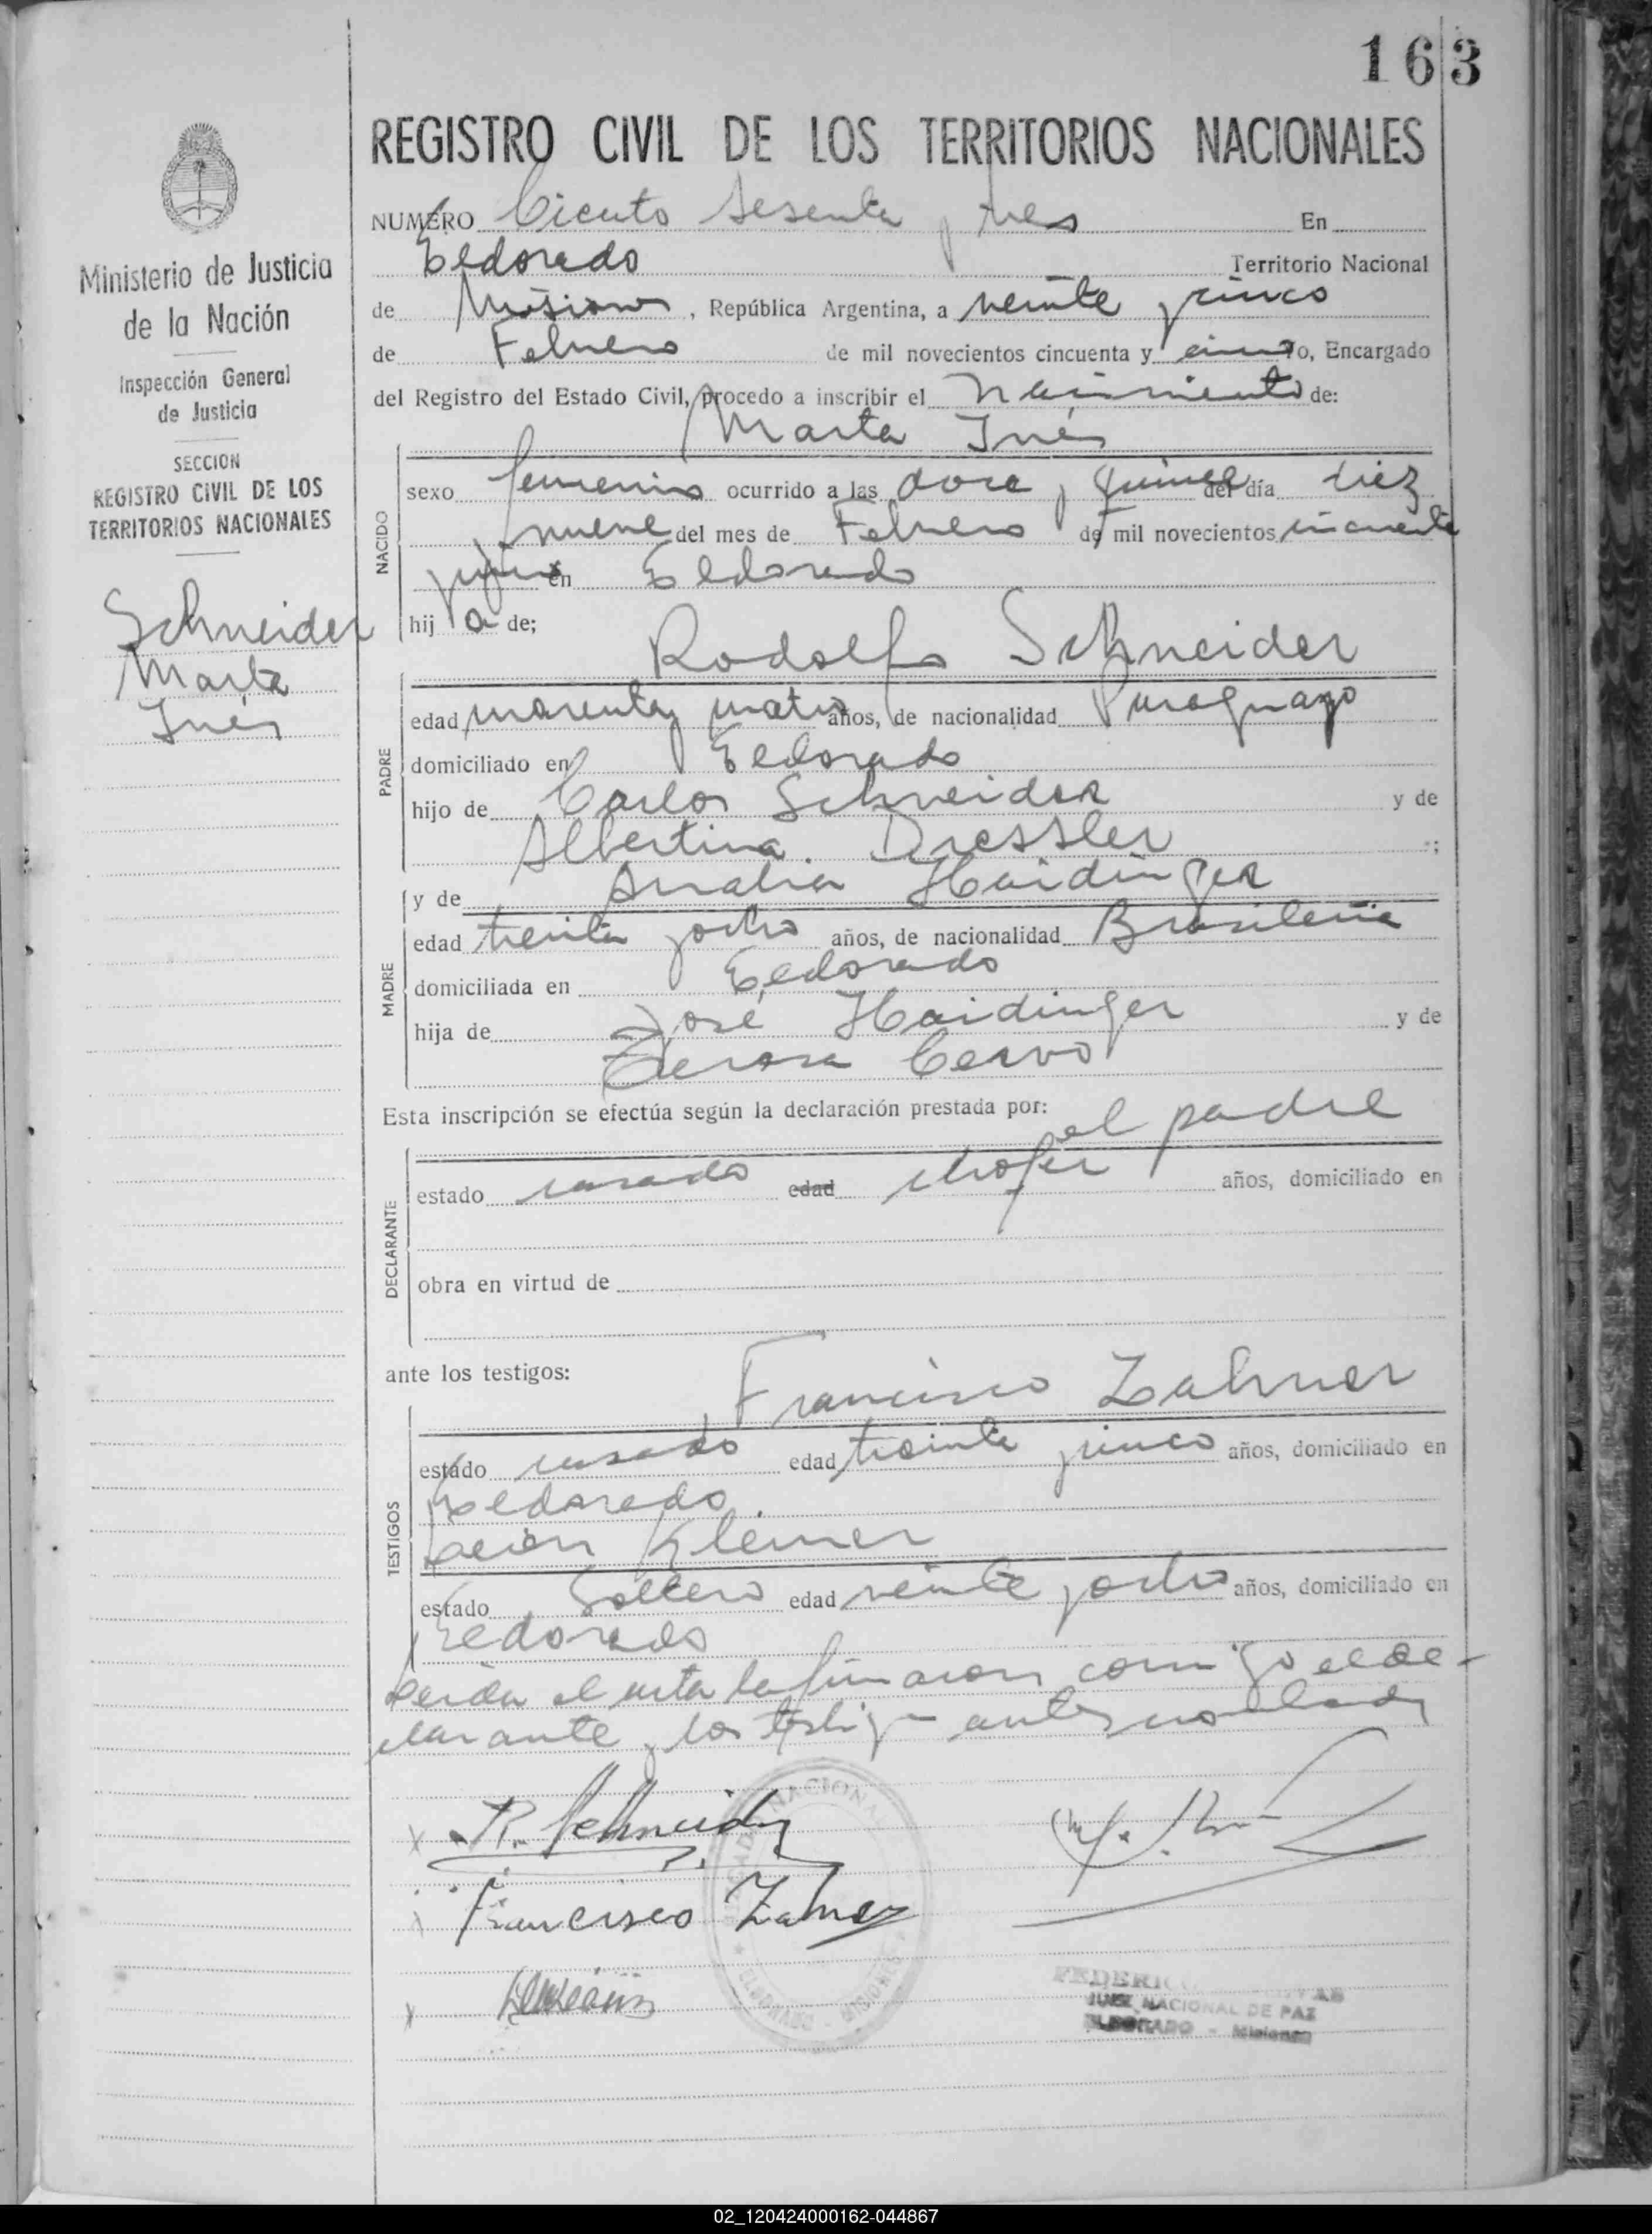 163
REGISTRO CIVIL DE LOS TERRITORIOS NACIONALES
NUMERO Ciento sesenta y tres En
Eldorado Territorio Nacional
de Misiones, República Argentina, a veinte y cinco
de Febrero de mil novecientos cincuenta y cinco, Encargado
del Registro del Estado Civil, procedo a inscribir el nacimiento de:
Marta Inés
NACIDO
sexo femenino ocurrido a las doce y quince del día diez
y nueve del mes de Febrero de mil novecientos cincuenta
y en Eldorado
hij a de;
Rodolfo Schneider
PADRE
edad cuarenta y cuatro años, de nacionalidad Paraguayo
domiciliado en Eldorado
hijo de Carlos Schneider y de
Albertina Dressler ;
y de Analia Haidinger
MADRE
edad treinta y ocho años, de nacionalidad Brasileña
domiciliada en Eldorado
hija de José Haidinger y de
Teresa Cervo
Esta inscripción se efectúa según la declaración prestada por: el padre
DECLARANTE
estado casado edad chofer años, domiciliado en
obra en virtud de
ante los testigos: Francisco Zahner
TESTIGOS
estado casado edad treinta y cinco años, domiciliado en
Eldorado.
León Kleiner
estado Soltero edad veinte y ocho años, domiciliado en
Eldorado
Leida el acta la firmaron conmigo el de-
clarante y los testigos antes nombrados
R. Schneider
Francisco Zahner
JUZGADO NACIONAL
ELDORADO - MISIONES
JUEZ NACIONAL DE PAZ
ELDORADO - Misiones
Ministerio de Justicia
de la Nación
Inspección General
de Justicia
SECCION
REGISTRO CIVIL DE LOS
TERRITORIOS NACIONALES
Schneider
Marta
Inés
02_120424000162-044867